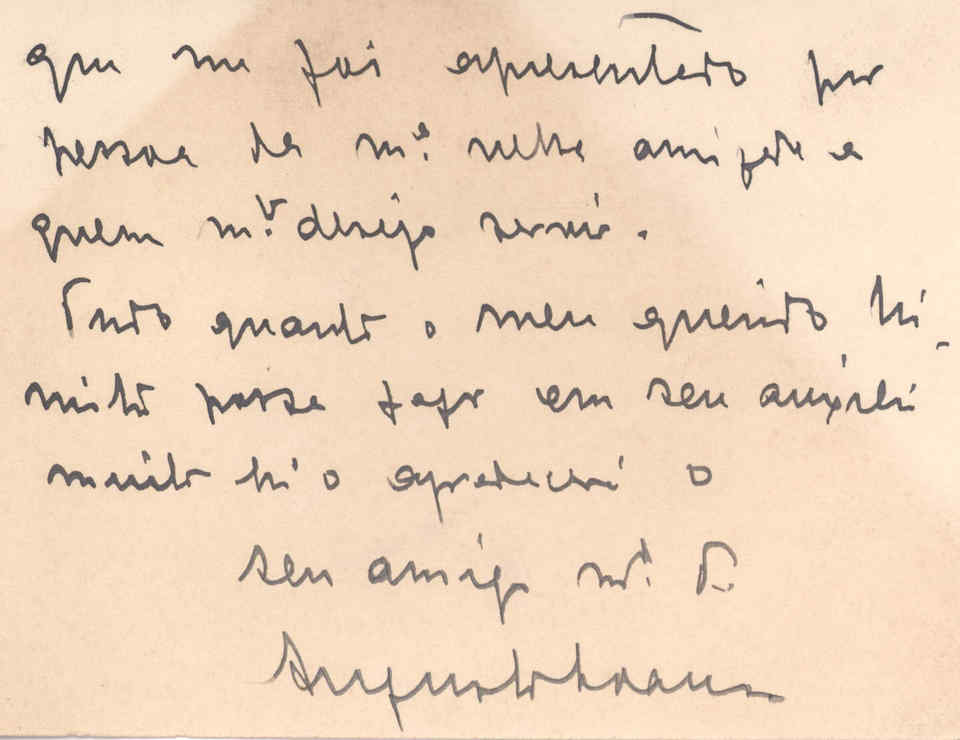 que me foi apresentado por
pessoa da m.ª nossa amizade e a
quem m.to desejo servir.
Tudo quanto o meu querido
possa fazer em seu auxilio
muito lh'o agradecerá o
seu amigo m.to
Augusto